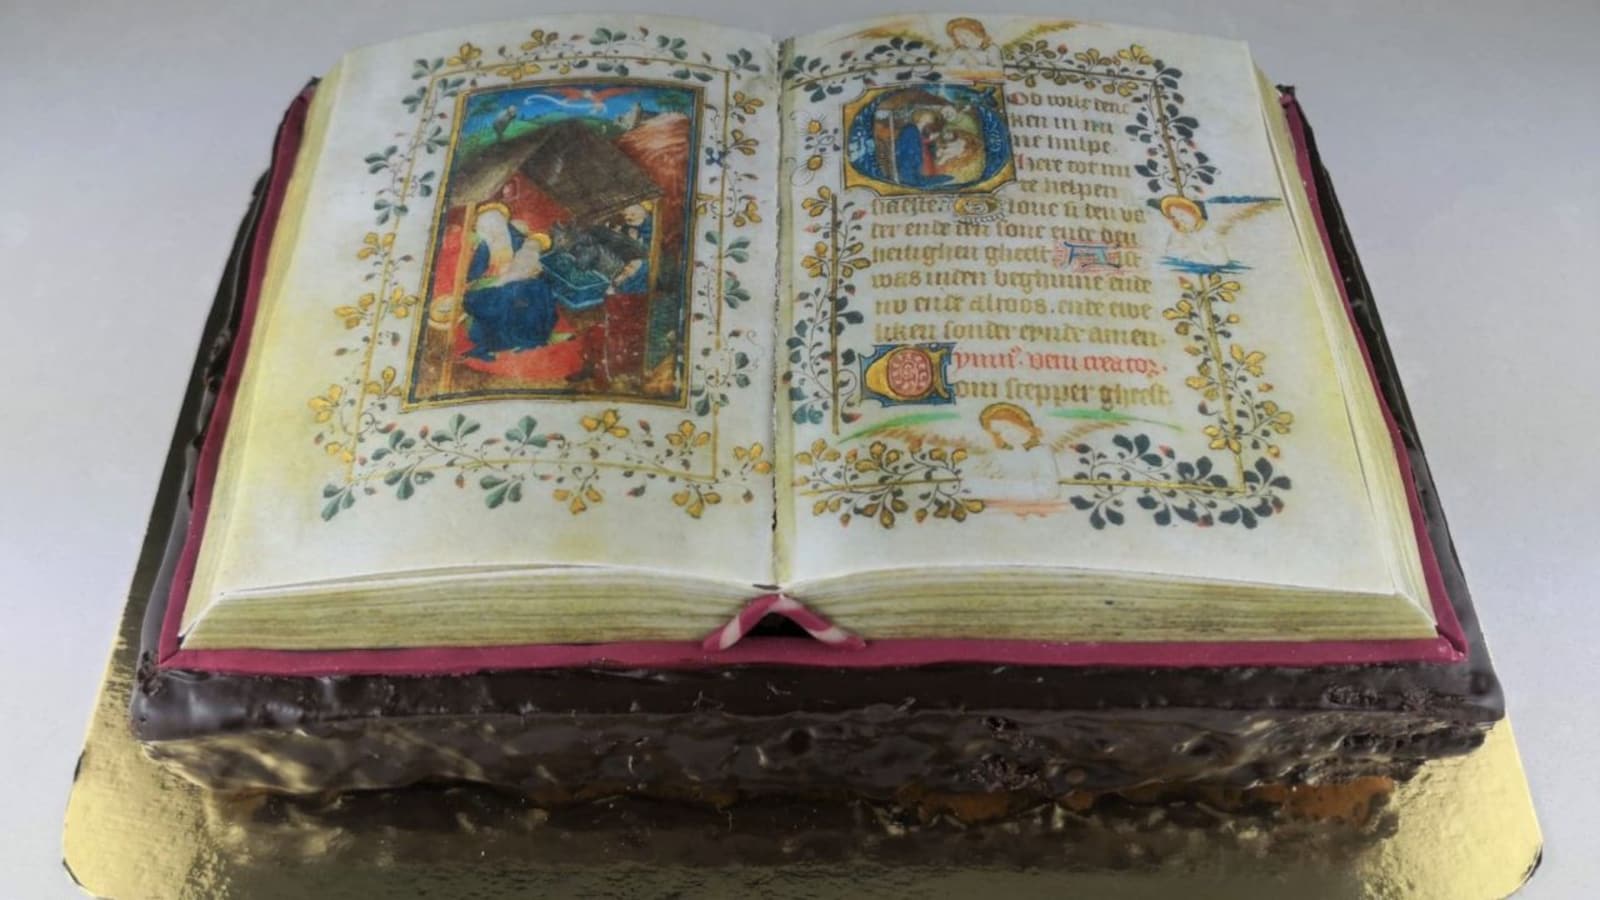 God wilt denc
ken in mi
ne hulpe.
Here tot mi
te helpen
haeste. Glorie si den va
der ende den sone ende den
heilighen gheest Alst
was inden beghinne ende
nv ende altoos. ende ewe
liken sonder eynde amen.
ymnꝰ. veni creator.
Com scepper gheest.